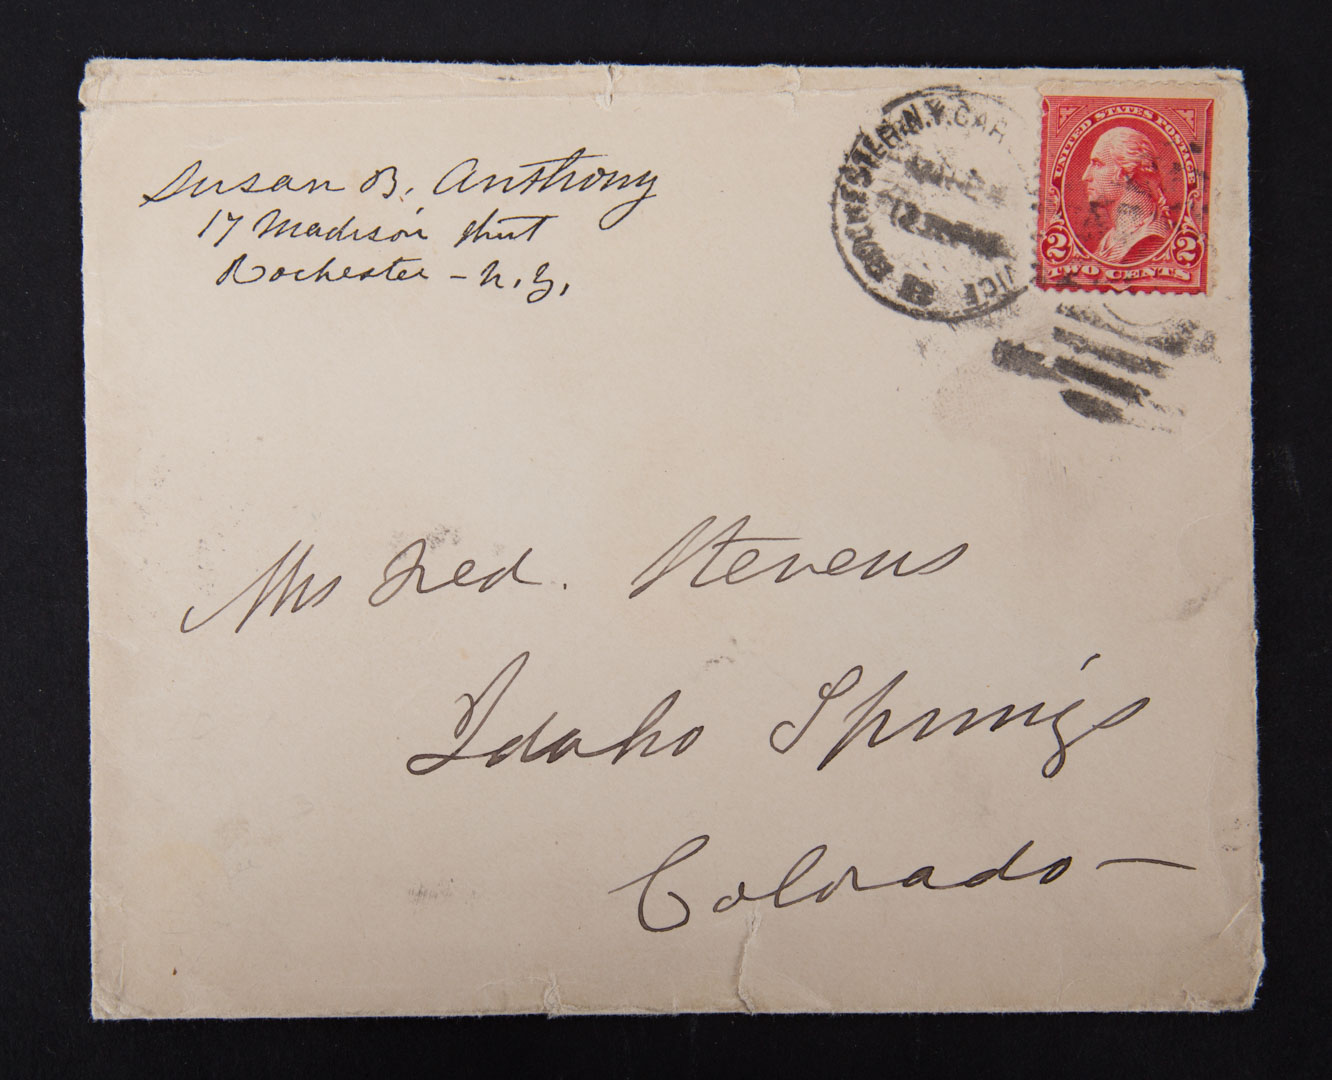 Susan B. Anthony
17 Madison Street
Rochester - N.Y.
ROCHESTER N.Y. CAR
UNITED STATES POSTAGE
2 2
TWO CENTS
Mrs Fred. Stevens
Idaho Springs
Colorado —